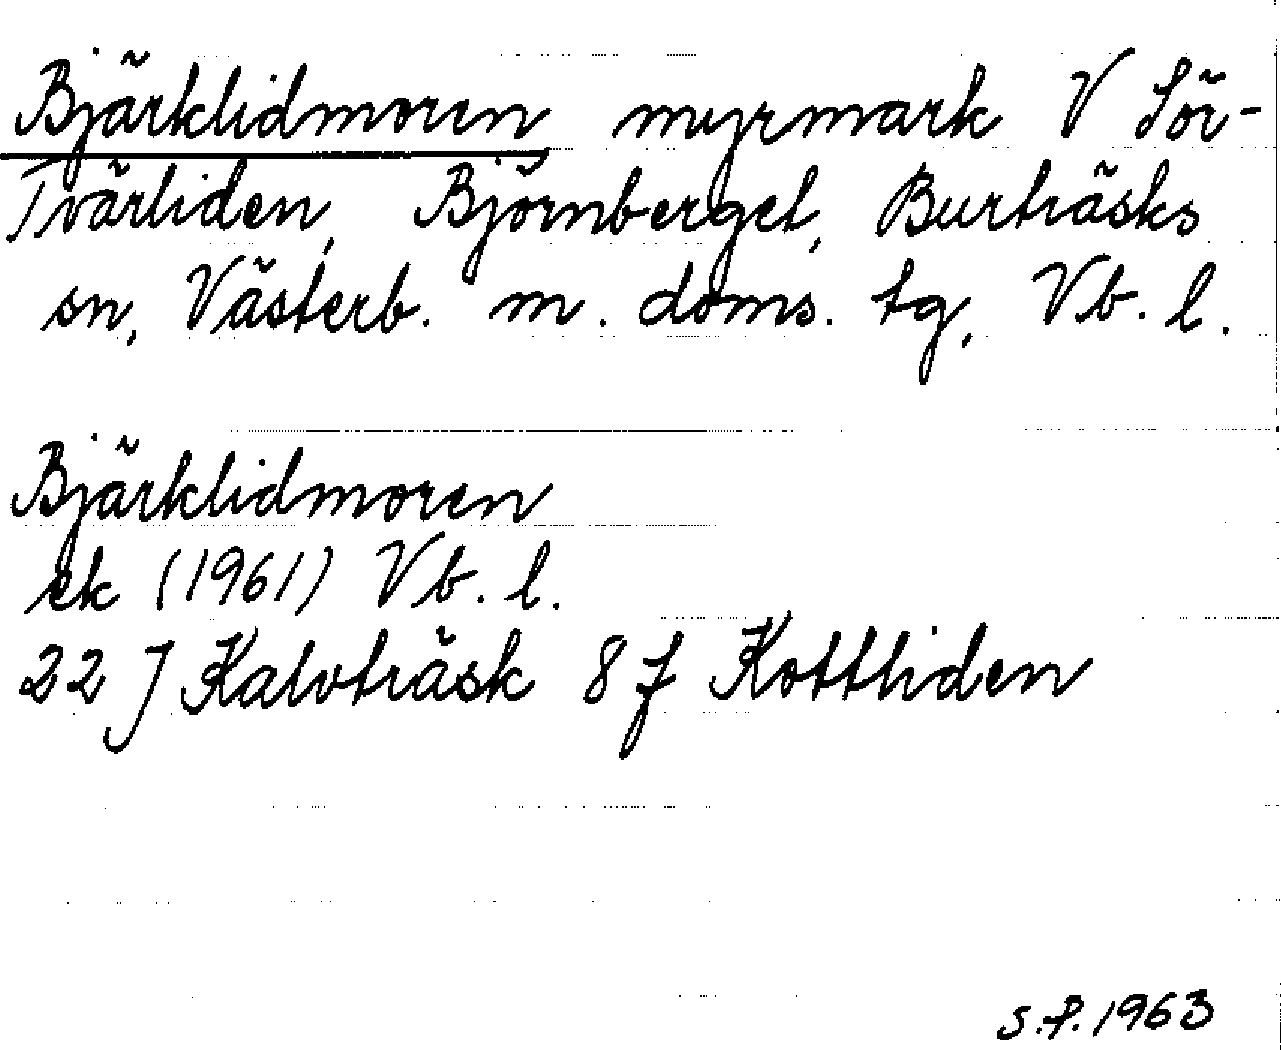 Bjärklidmoren myrmark V Sör-
Tvärliden, Björnberget, Burträsks
sn, Västerb. m. doms. tg, Vb. l.
Bjärklidmoren
ek (1961) Vb. l.
22 J Kalvträsk 8 f Kottliden
S.P. 1963